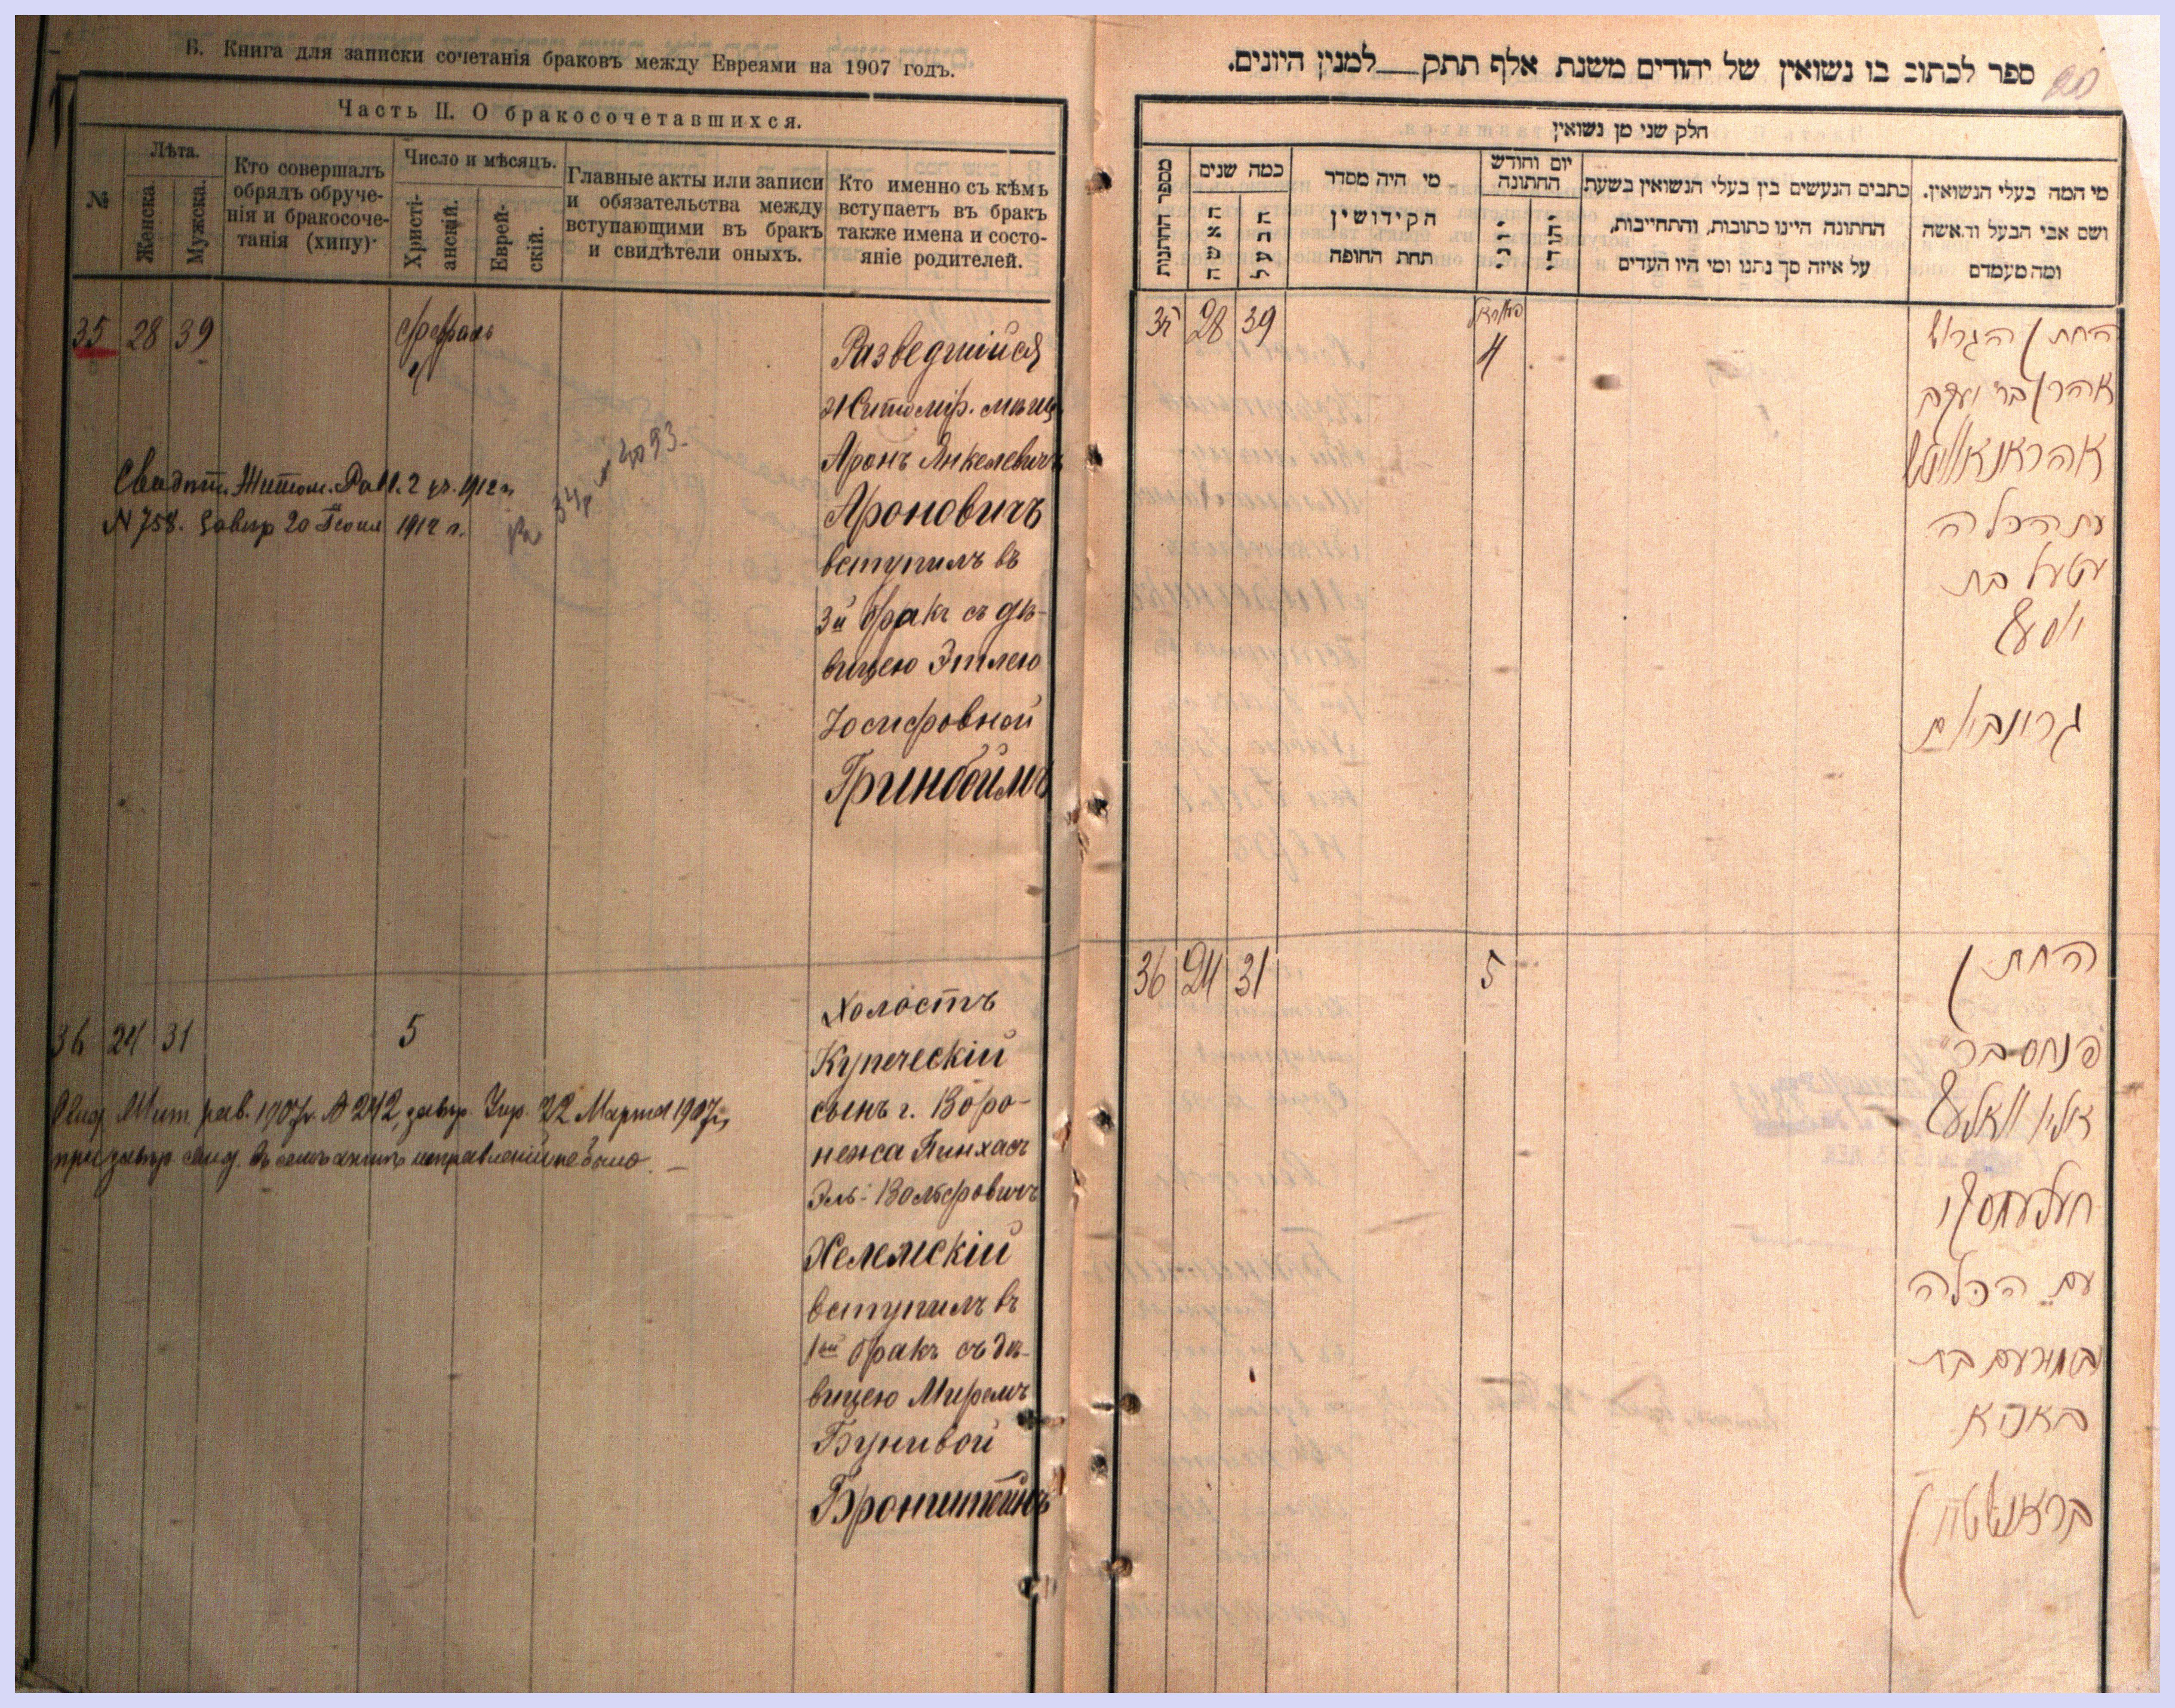 Б. Книга для записки сочетанія браковъ между Евреями на 1907 годъ.
Часть II. О бракосочетавшихся.
№
Лѣта.
Женска.
Мужска.
Кто совершалъ
обрядъ обруче-
нія и бракосоче-
танія (хипу)
Число и мѣсяцъ.
Христі-
анскій.
Еврей-
скій.
Главные акты или записи
и обязательства между
вступающими въ бракъ
и свидѣтели оныхъ.
Кто именно съ кѣмъ
вступаетъ въ бракъ
также имена и состо-
яніе родителей.
35 28 39
4
Разведшійся
Житомір. мѣщ
Аронъ Янкелевичъ
Ароновичъ
вступилъ въ
3й бракъ съ дѣ-
вицею Этлею
Іосифовной
Гринбоймъ
Свидѣт. Житом. Рав. 1912 г.
N 758. завѣр 20 1912 г.
36 24 31
5
Холостъ
Купеческій
сынъ г. Воро-
нежа Пинхасъ
Эль-Вольфовичъ
Хелемскій
вступилъ въ
1ый бракъ съ дѣ-
вицею Миремъ
Бунивой
Бронштейнъ
Жит. рав. 1907г. № 242, завѣр. 22 Марта 1907г.
при завѣр. свид. въ семъ актѣ исправленій не было. —
ספר לכתוב בו נשואין של יהודים משנת אלף תתק למנין היונים.
20
חלק שני מן נשואין
מספר החתונות
כמה שנים
האשה
הבעל
מי היה מסדר
הקידושין
תחת החופה
יום וחודש
החתונה
יוני
יהודי
כתבים הנעשים בין בעלי הנשואין בשעת
החתונה היינו כתובות, והתחייבות,
על איזה סך נתנו ומי היו העדים
מי המה בעלי הנשואין.
ושם אבי הבעל והאשה
ומה מעמדם
35 28 39
4
החתן הגרוש
אהרן בר יעקב
אהראנאוויטש
עם הכלה
עטעל בת
יוסף
גרונבוים
36 24 31
5
החתן
פנחס בר
עם הכלה
בת
בונא
בראנשטיין